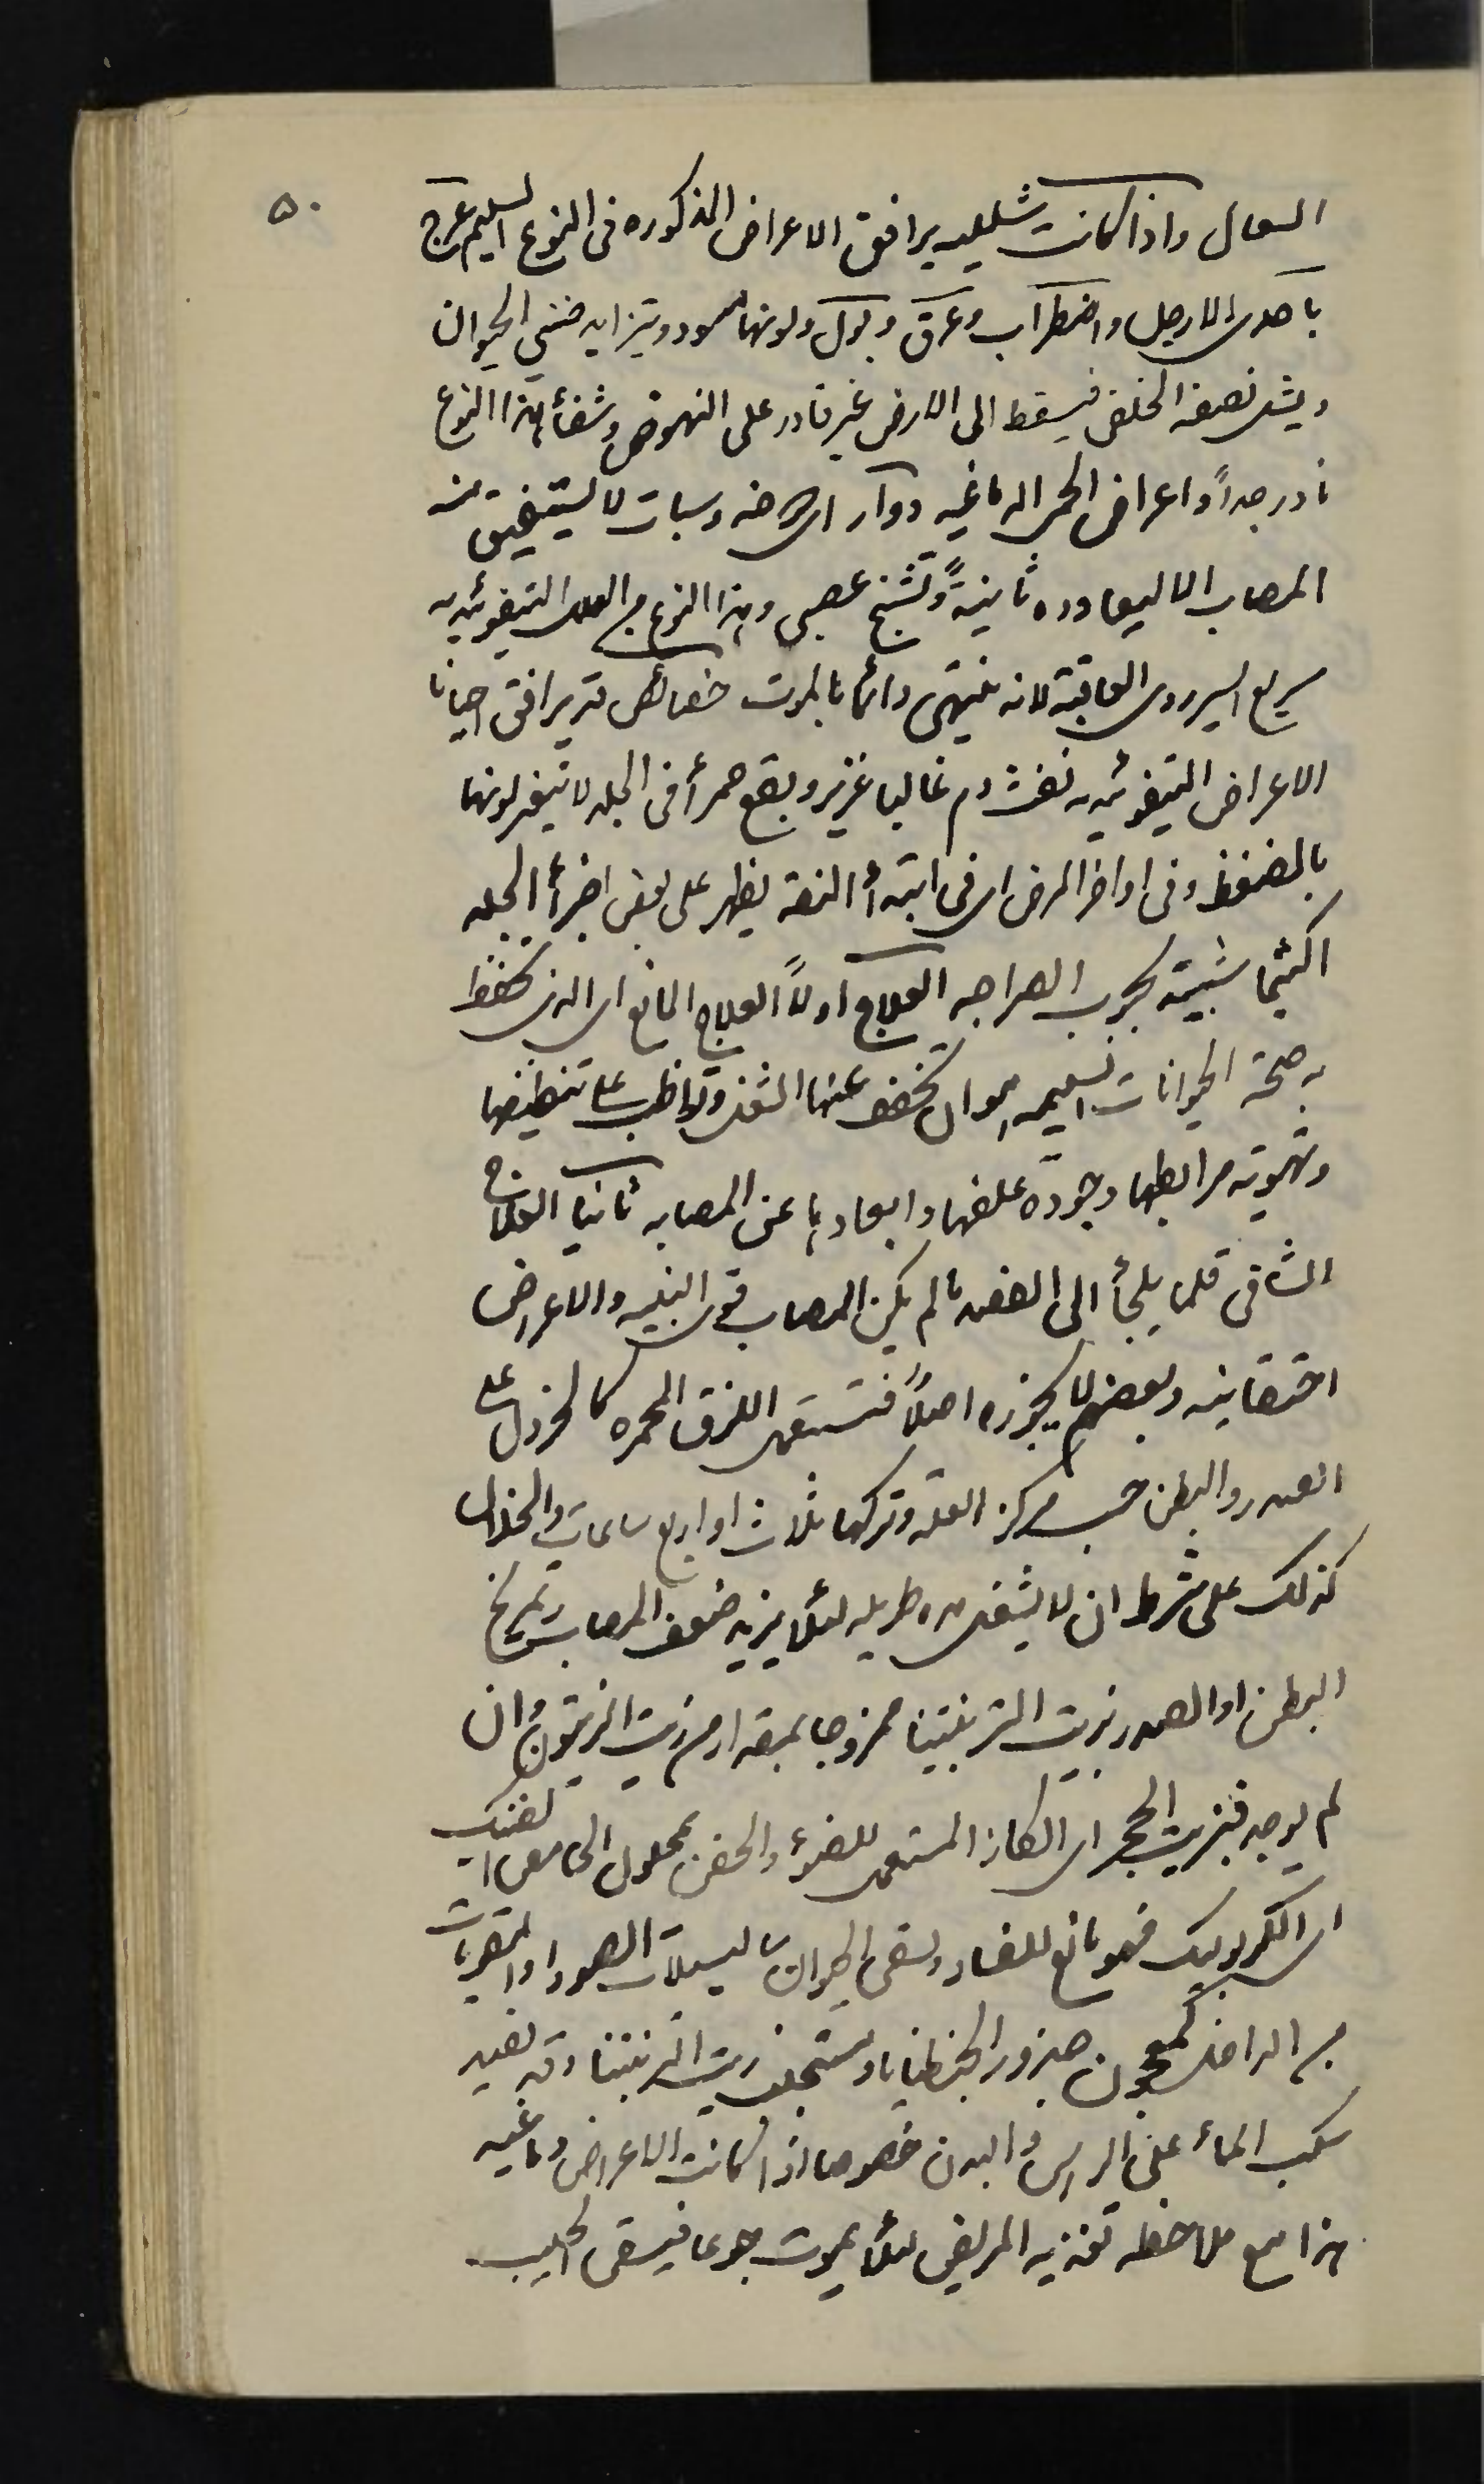 ٥٠
السعال واذا كانت شللیه یرافق الاعراض المذكوره فى النوع السلیم عرج
باحدى الارجل واضطراب وعرق وبول ولونهما اسود ویتزاید ضنى الحیوان
ویشل نصفه الخلفى فیسقط الى الارض غیر قادر على النهوض وشفأ هذا النوع
نادر جداً واعراض الحمى الدماغیه دوار اى دوخه وسبات لا یستفیق منه
المصاب الا لیعاوده ثانیةً وتشنج عصبى وهذا النوع من العلل التیفوئیدیه
سریع السیر ردى العاقبة لانه ینتهى دائما بالموت خصائص قد یرافق احیانا
الاعراض التیفوئیدیه نفث دم غالبا غزیر وبقع حمرأ فى الجلد لا یتغیر لونها
بالضغط وفى اواخر المرض اى فى ابتدأ النقه یظهر على بعض اجزأ الجلد
اكثیما شبیهة بجرب السراجه العلاج اولاً العلاج المانع اى الذى تحفظ
به صحة الحیوانات السلیمه هو ان تخفف عنها الشغل وتواظب على تنظیفها
وتهویة مرابطها وجودة علفها وابعادها عن المصابه ثانیا العلاج
الشافى قلما یلجأ الى الفصد ما لم یكن المصاب قوى البنیه والاعراض
احتقانیه وبعضهم لا یجوزه اصلاً فتستعمل اللزق المحمره كالخردل على
الصدر والبطن حسب مركز العله وتركها ثلاث او اربع ساعات والخلال
كذلك على شرط ان لا یشغل مده طویله لئلا یزید ضعف المصاب وتمریخ
البطن او الصدر بزیت التربنتینا ممزوجا بمقدار من زیت الزیتون وان
لم یوجد فبزیت الحجر اى الكاز المستعمل للضوء والحقن بمحلول الحامض الفنیك
اى الكربولیك فهو مانع للفساد ویسقى الحیوان سالیسیلات الصودا والمقویات
من الداخل كمعجون جذور الجنطیانا ومستحلب زیت التربنتینا وقد یفید
سكب المأ على الراس والبدن خصوصا اذا كانت الاعراض دماغیه
هذا مع ملاحظه تغذیه المریض لئلا یموت جوعا فیسقى الحلیب